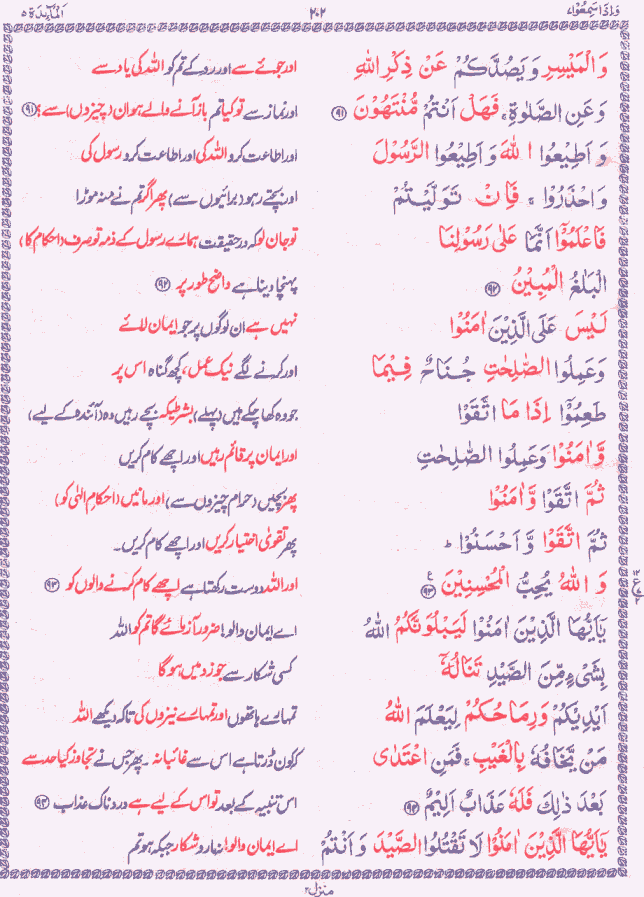 وَاِذَا سَمِعُوْا ٧ ٢٠٢ اَلْمَآئِدَة ٥
وَالْمَيْسِرِ وَيَصُدَّكُمْ عَنْ ذِكْرِ اللّٰهِ اور جوئے سے اور روکے تم کو اللہ کی یاد سے
وَعَنِ الصَّلٰوةِ ۚ فَهَلْ اَنْتُمْ مُّنْتَهُوْنَ ﴿٩١﴾ اور نماز سے تو کیا تم باز آنے والے ہو ان (چیزوں) سے؟ ﴿٩١﴾
وَاَطِيْعُوا اللّٰهَ وَاَطِيْعُوا الرَّسُوْلَ اور اطاعت کرو اللہ کی اور اطاعت کرو رسول کی
وَاحْذَرُوْا ۚ فَاِنْ تَوَلَّيْتُمْ اور بچتے رہو (برائیوں سے) پھر اگر تم نے منہ موڑا
فَاعْلَمُوْٓا اَنَّمَا عَلٰى رَسُوْلِنَا تو جان لو کہ درحقیقت ہمارے رسول کے ذمہ تو صرف (احکام کا)
الْبَلٰغُ الْمُبِيْنُ ﴿٩٢﴾ پہنچا دینا ہے واضح طور پر ﴿٩٢﴾
لَيْسَ عَلَى الَّذِيْنَ اٰمَنُوْا نہیں ہے ان لوگوں پر جو ایمان لائے
وَعَمِلُوا الصّٰلِحٰتِ جُنَاحٌ فِيْمَا اور کرنے لگے نیک عمل، کچھ گناہ اس پر
طَعِمُوْٓا اِذَا مَا اتَّقَوْا جو وہ کھا چکے ہیں (پہلے) بشرطیکہ بچے رہیں وہ (آئندہ کے لیے)
وَّاٰمَنُوْا وَعَمِلُوا الصّٰلِحٰتِ اور ایمان پر قائم رہیں اور اچھے کام کریں
ثُمَّ اتَّقَوْا وَّاٰمَنُوْا پھر بچیں (حرام چیزوں سے) اور مانیں (احکامِ الٰہی کو)
ثُمَّ اتَّقَوْا وَّاَحْسَنُوْا ؕ پھر تقویٰ اختیار کریں اور اچھے کام کریں۔
وَاللّٰهُ يُحِبُّ الْمُحْسِنِيْنَ ﴿٩٣﴾ اور اللہ دوست رکھتا ہے اچھے کام کرنے والوں کو ﴿٩٣﴾
يٰٓاَيُّهَا الَّذِيْنَ اٰمَنُوْا لَيَبْلُوَنَّكُمُ اللّٰهُ اے ایمان والو! ضرور آزمائے گا تم کو اللہ
بِشَىْءٍ مِّنَ الصَّيْدِ تَنَالُهٗٓ کسی شکار سے جو زد میں ہو گا
اَيْدِيْكُمْ وَرِمَاحُكُمْ لِيَعْلَمَ اللّٰهُ تمہارے ہاتھوں اور تمہارے نیزوں کی تاکہ دیکھے اللہ
مَنْ يَّخَافُهٗ بِالْغَيْبِ ۚ فَمَنِ اعْتَدٰى کہ کون ڈرتا ہے اس سے غائبانہ۔ پھر جس نے تجاوز کیا حد سے
بَعْدَ ذٰلِكَ فَلَهٗ عَذَابٌ اَلِيْمٌ ﴿٩٤﴾ اس تنبیہ کے بعد تو اس کے لیے ہے دردناک عذاب ﴿٩٤﴾
يٰٓاَيُّهَا الَّذِيْنَ اٰمَنُوْا لَا تَقْتُلُوا الصَّيْدَ وَاَنْتُمْ اے ایمان والو! نہ مارو شکار جبکہ ہو تم
منزل ٢